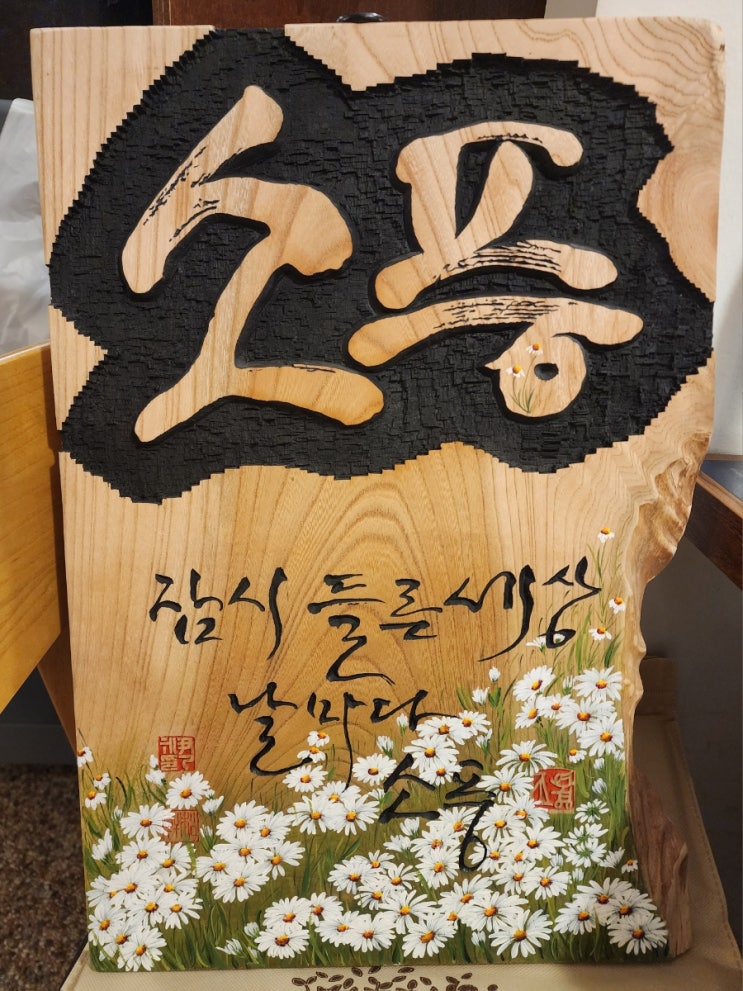 소풍
잠시 들른 세상
날마다
소풍